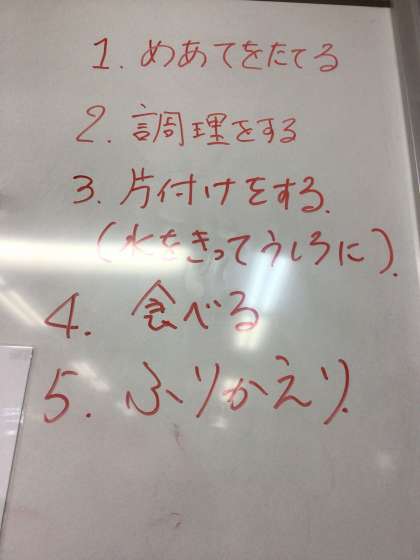 1. めあてをたてる
2. 調理をする
3. 片付けをする.
(水をきってうしろに).
4. 食べる
5. ふりかえり.